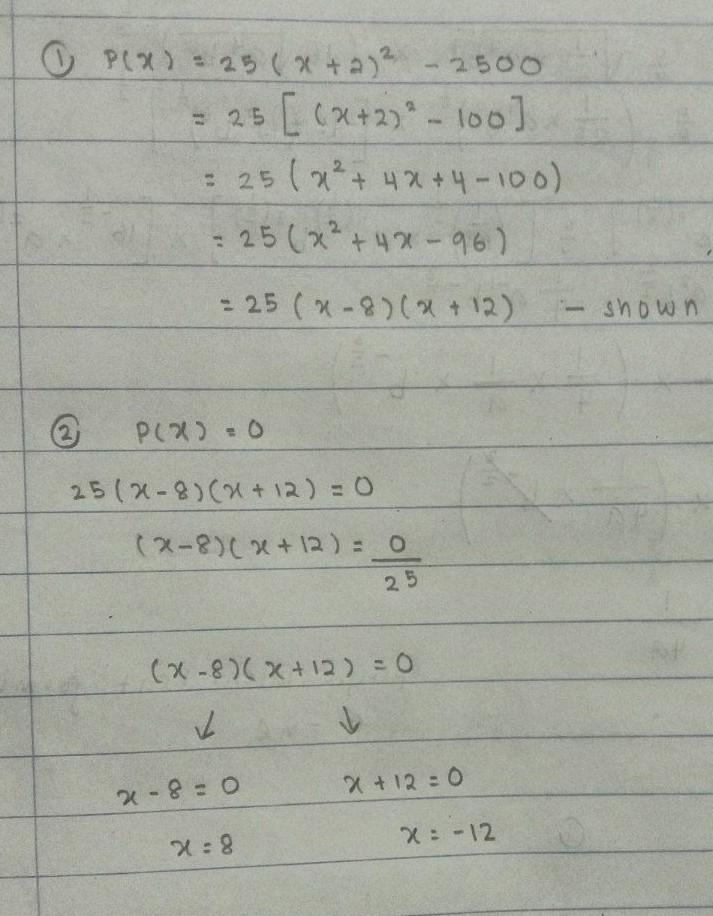 ① P(x) = 25(x+2)² - 2500
= 25[(x+2)² - 100]
= 25(x² + 4x + 4 - 100)
= 25(x² + 4x - 96)
= 25(x - 8)(x + 12) - shown
② P(x) = 0
25(x-8)(x+12) = 0
(x-8)(x+12) = 0/25
(x-8)(x+12) = 0
↙ ↓
x - 8 = 0 x + 12 = 0
x = 8 x = -12